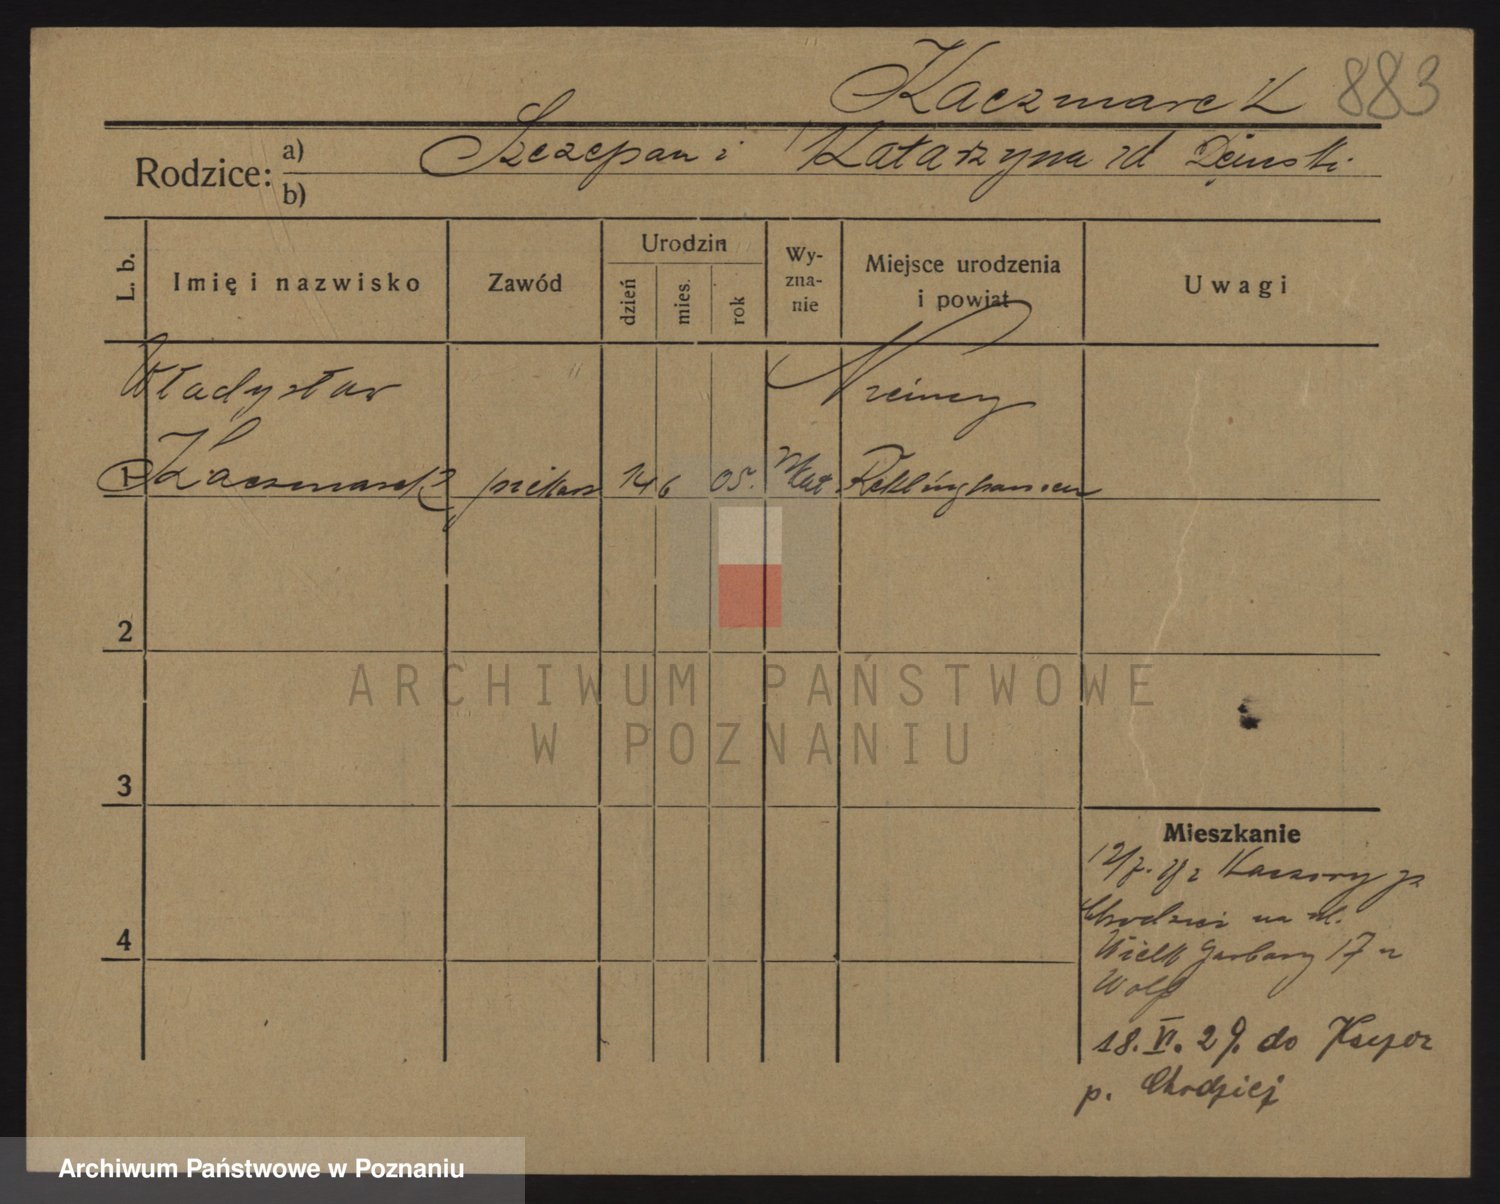 Kaczmarek 883
Rodzice: a) Szczepan i Katarzyna zd
b)
L. b. Imię i nazwisko Zawód Urodzin dzień mies. rok Wy-zna-nie Miejsce urodzenia i powiat Uwagi
Władysław Niemcy
1 Kaczmarek piekarz 14 6 05. kat.
2
3
4
Mieszkanie
z Kaczory
na ul.
Wielk Garbary 17 u
Wolf
18. VI. 29. do
p. Chodzież
ARCHIWUM PAŃSTWOWE
W POZNANIU
Archiwum Państwowe w Poznaniu